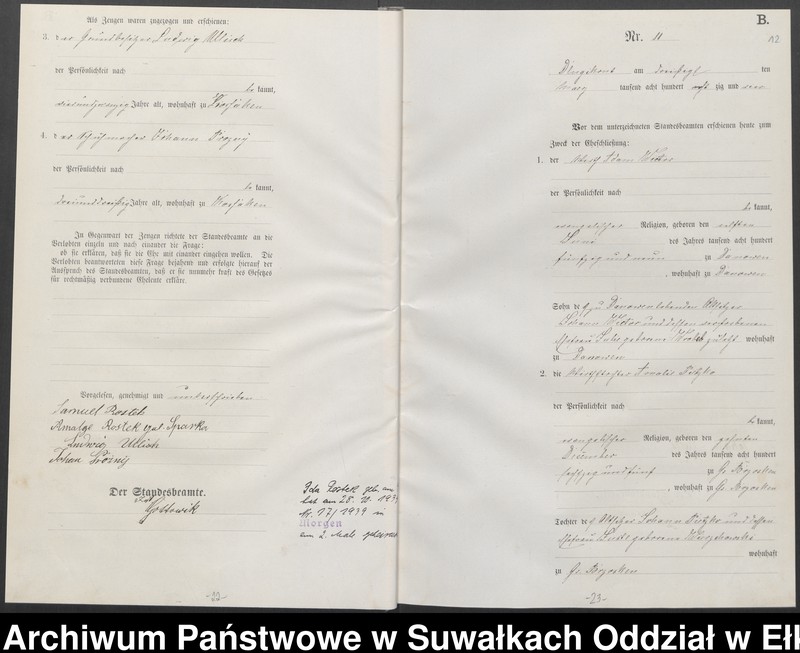 Als Zeugen waren zugezogen und erschienen:
3. der Grundbesitzer Ludwig Ullrich
der Persönlichkeit nach
be kannt,
vierundzwanzig Jahre alt, wohnhaft zu
4. der Schuhmacher Johann
der Persönlichkeit nach
be kannt,
dreiunddreißig Jahre alt, wohnhaft zu
In Gegenwart der Zeugen richtete der Standesbeamte an die
Verlobten einzeln und nach einander die Frage:
ob sie erklären, daß sie die Ehe mit einander eingehen wollen. Die
Verlobten beantworteten diese Frage bejahend und erfolgte hierauf der
Ausspruch des Standesbeamten, daß er sie nunmehr kraft des Gesetzes
für rechtmäßig verbundene Eheleute erkläre.
Vorgelesen, genehmigt und unterschrieben
Samuel Rostek
Amalge Rostek geb. Sparka
Ludwig Ullich
Johan
Der Standesbeamte.
Gollowik
Ida Rostek geb. am
hat am 28. 1939
Nr. 17/1939 in
Morgen
am 2. Male
-22-
B.
12
Nr. 11
Dlugikont am dreißigsten
tausend acht hundert acht zig und
Vor dem unterzeichneten Standesbeamten erschienen heute zum
Zweck der Eheschließung:
1. der Adam
der Persönlichkeit nach
be kannt,
evangelischer Religion, geboren den elften
Juni des Jahres tausend acht hundert
fünfzig und neun zu Danowen
, wohnhaft zu Danowen
Sohn de zu Danowen lebenden Altsitzer
Johann und dessen verstorbenen
Ehefrau geborene zuletzt wohnhaft
zu Danowen
2. die Amalie
der Persönlichkeit nach
be kannt,
evangelischer Religion, geboren den zehnten
Dezember des Jahres tausend acht hundert
sechzig und fünf zu Gr. Brzosken
, wohnhaft zu Gr. Brzosken
Tochter de s Altsitzer Johann und dessen
Ehefrau geborene
wohnhaft
zu Gr. Brzosken
-23-
Archiwum Państwowe w Suwałkach Oddział w Ełk